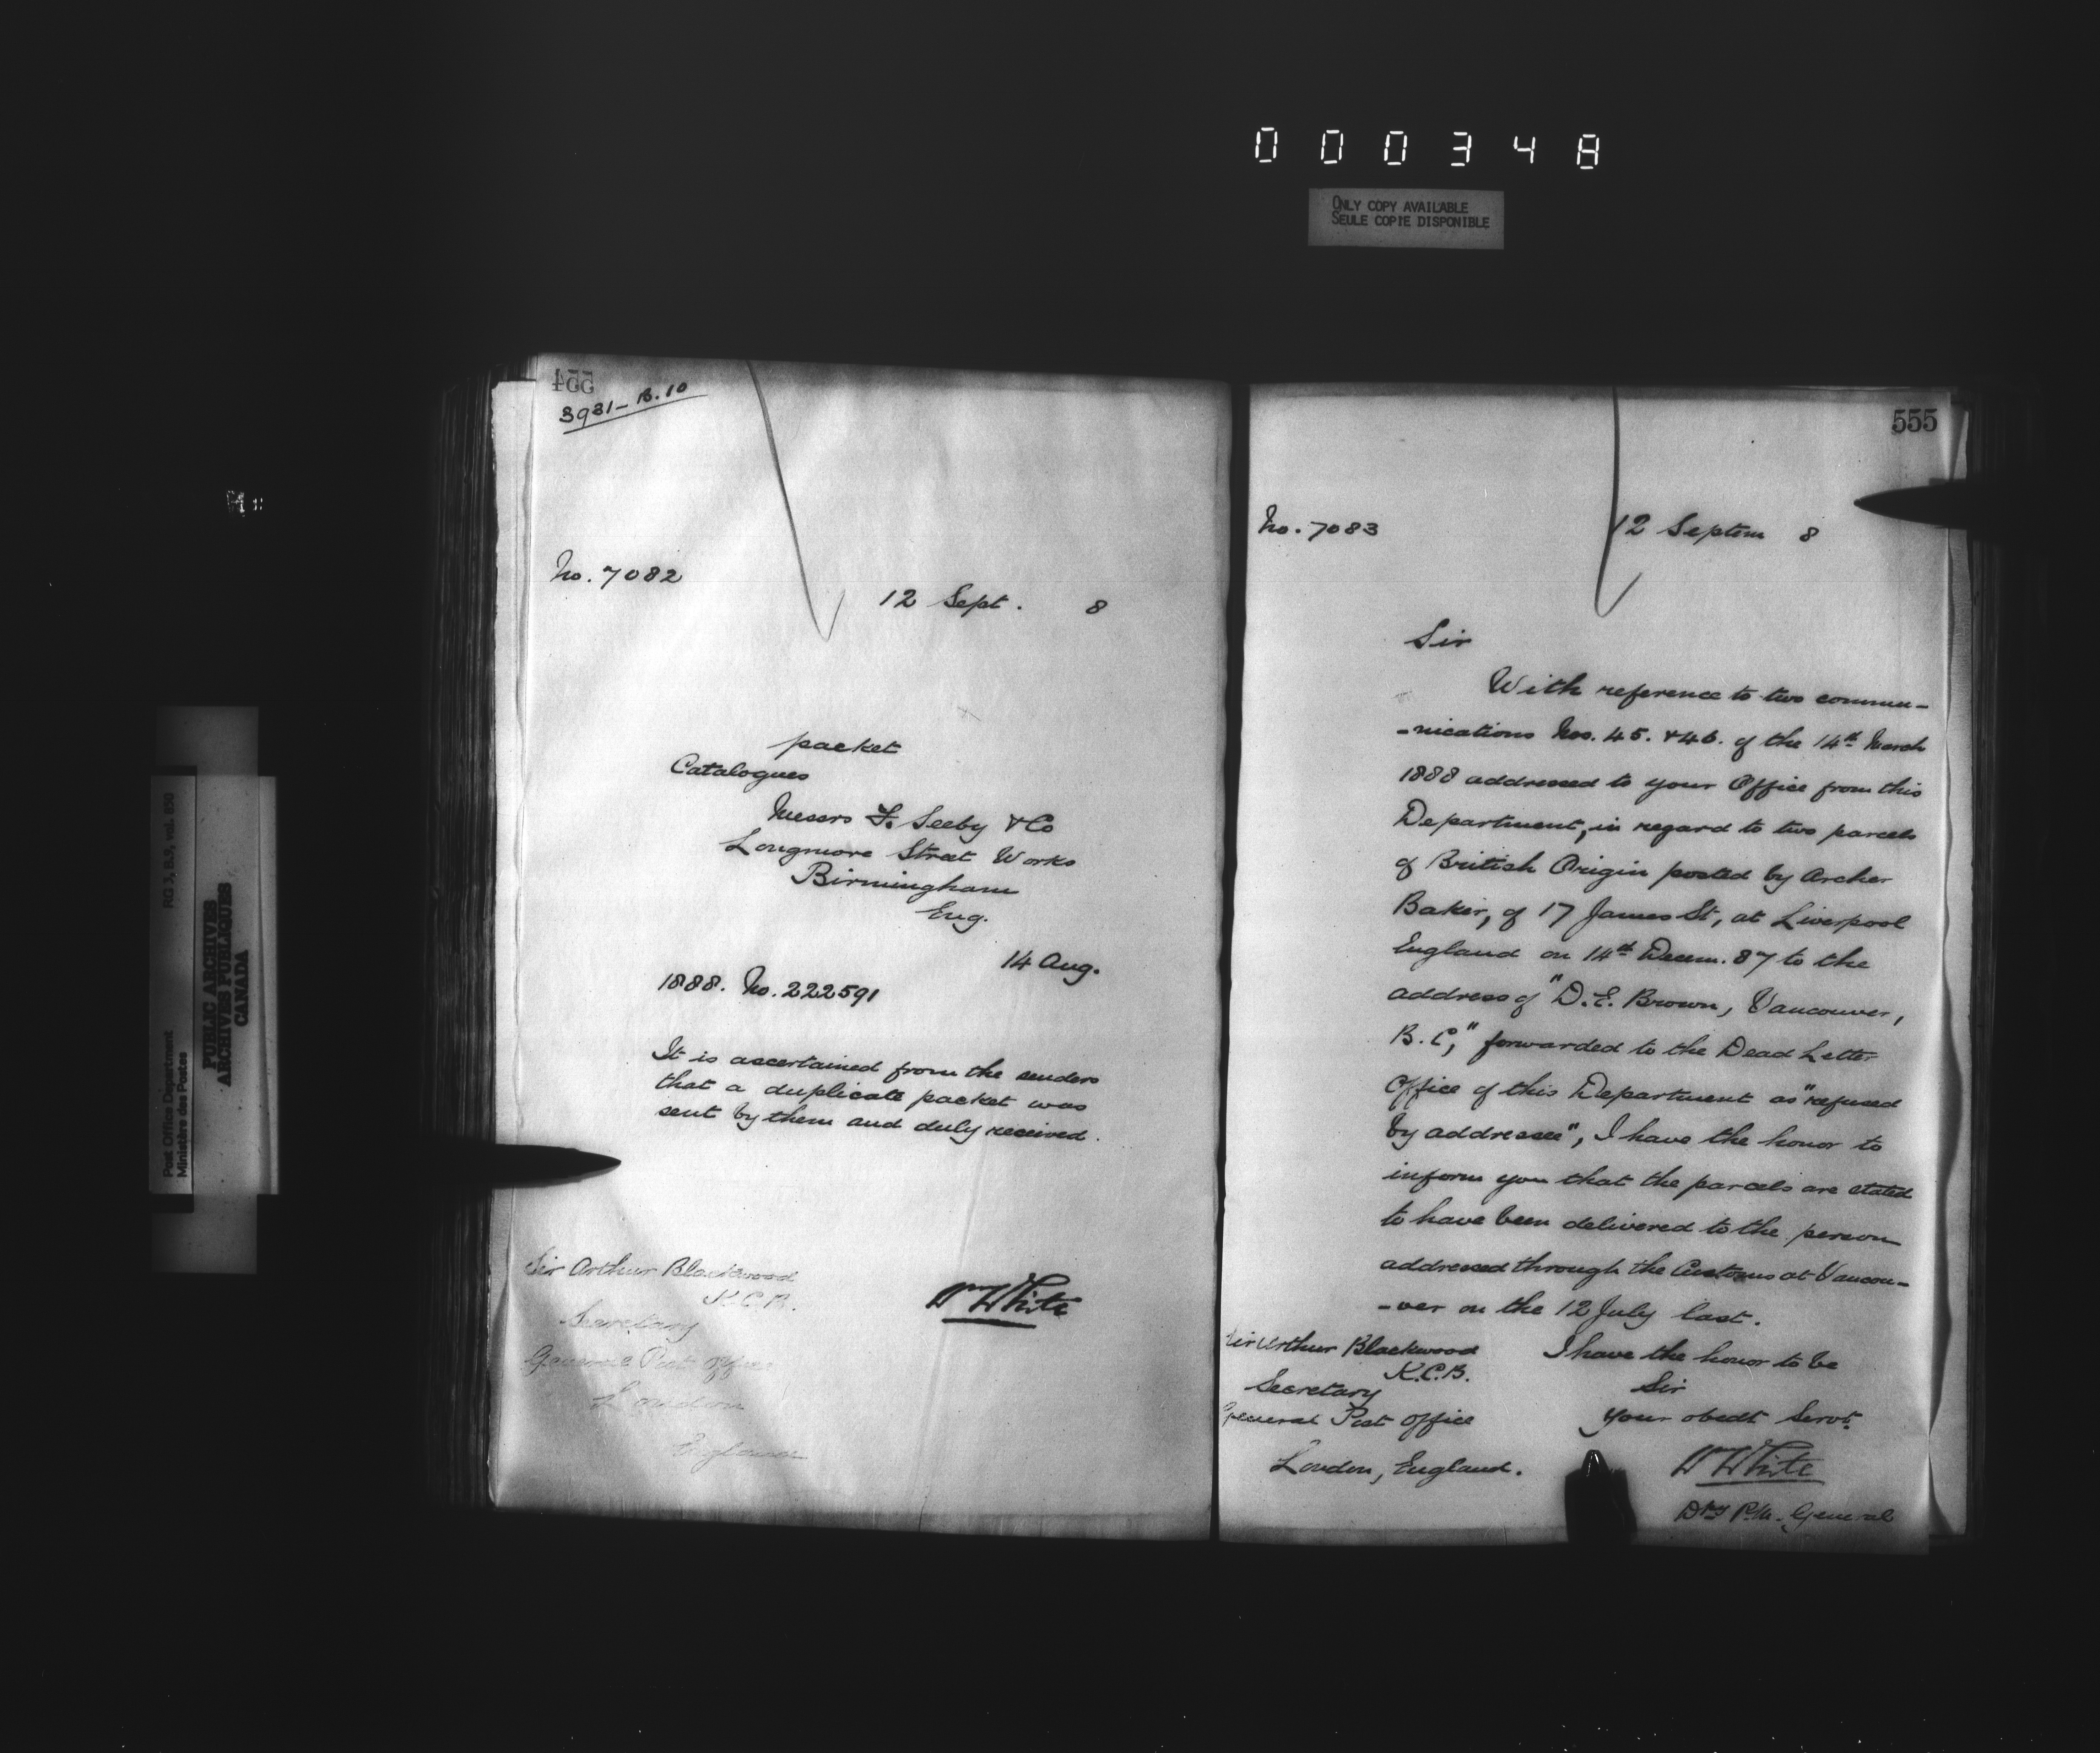 000348
ONLY COPY AVAILABLE
SEULE COPIE DISPONIBLE
Post Office Department
Ministère des Postes
RG 3, B.9, vol.
PUBLIC ARCHIVES
ARCHIVES PUBLIQUES
CANADA
554
3931-B.10
No. 7082
12 Sept. 8
packet
Catalogues
Messrs F. Seeby & Co
Longmore Street Works
Birmingham
Eng.
14 Aug.
1888. No. 222591
It is ascertained from the senders
that a duplicate packet was
sent by them and duly received.
Sir Arthur Blackwood
K.C.B.
Secretary
General Post Office
London
England
Wm White
555
No. 7083
12 Septem 8
Sir
With reference to two commu-
-nications Nos. 45. & 46. of the 14th March
1888 addressed to your Office from this
Department, in regard to two parcels
of British Origin posted by Archer
Baker, of 17 James St, at Liverpool
England on 14th Decem. 87 to the
address of "D. E. Brown, Vancouver,
B. C," forwarded to the Dead Letter
Office of this Department as "refused
by addressee", I have the honor to
inform you that the parcels are stated
to have been delivered to the person
addressed through the Customs at Vancou-
-ver on the 12 July last.
I have the honor to be
Sir
Your obedt Servt.
Wm White
Dpy P.M. General
Sir Arthur Blackwood
K.C.B.
Secretary
General Post Office
London, England.